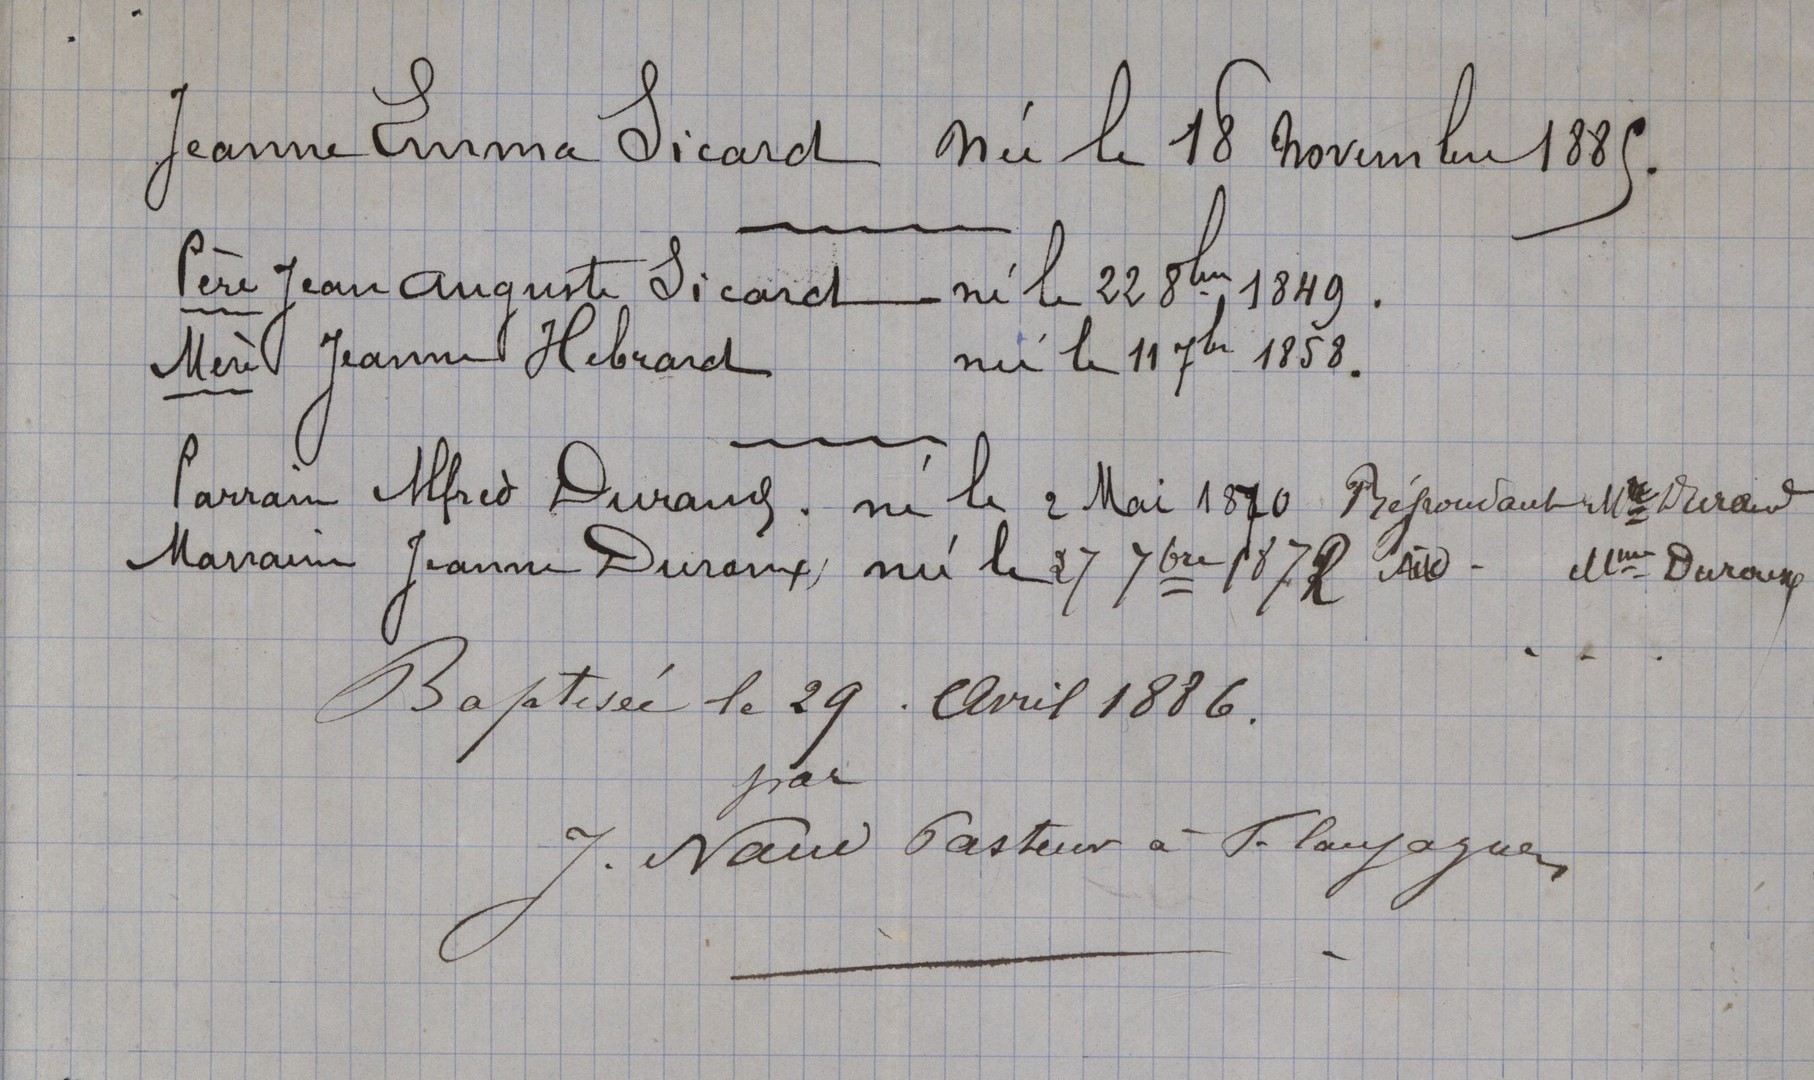 Jeanne Emma Sicard née le 18 novembre 1885.
Père Jean Auguste Sicard né le 22 8bre 1849.
Mère Jeanne Hebrard née le 11 7bre 1858.
Parrain Alfred Durand. né le 2 Mai 1870 Répondant Mr Durand
Marraine Jeanne Duroux, née le 27 7bre 1872 - Mme Duroux
Baptisée le 29. Avril 1886.
par
J. Pasteur à